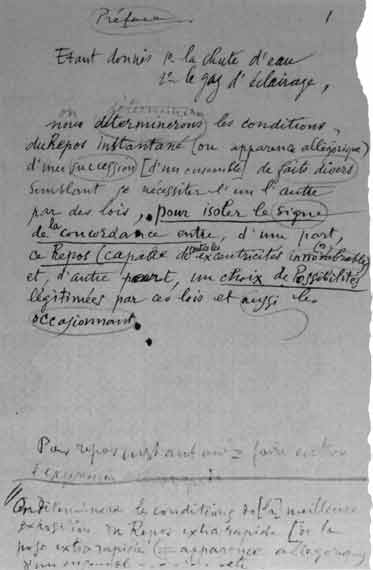 Préface 1
Etant donnés 1° la chute d'eau
2° le gaz d'éclairage,
on déterminera
nous déterminerons les conditions
du Repos instantané (ou apparence allégorique)
d'une succession [d'un ensemble] de faits divers
semblant se nécessiter l'un l'autre
par des lois, pour isoler le signe
de la concordance entre, d'une part,
ce Repos (capable de toutes les excentricités innombrables)
et, d'autre part, un choix de Possibilités
légitimées par ces lois et aussi les
occasionnant.
Pour repos instantané = faire entrer
l'expression
On déterminera les conditions de [la] meilleure
exposition du Repos extra rapide [de la
pose extra rapide (= apparence allégorique)
d'un ensemble